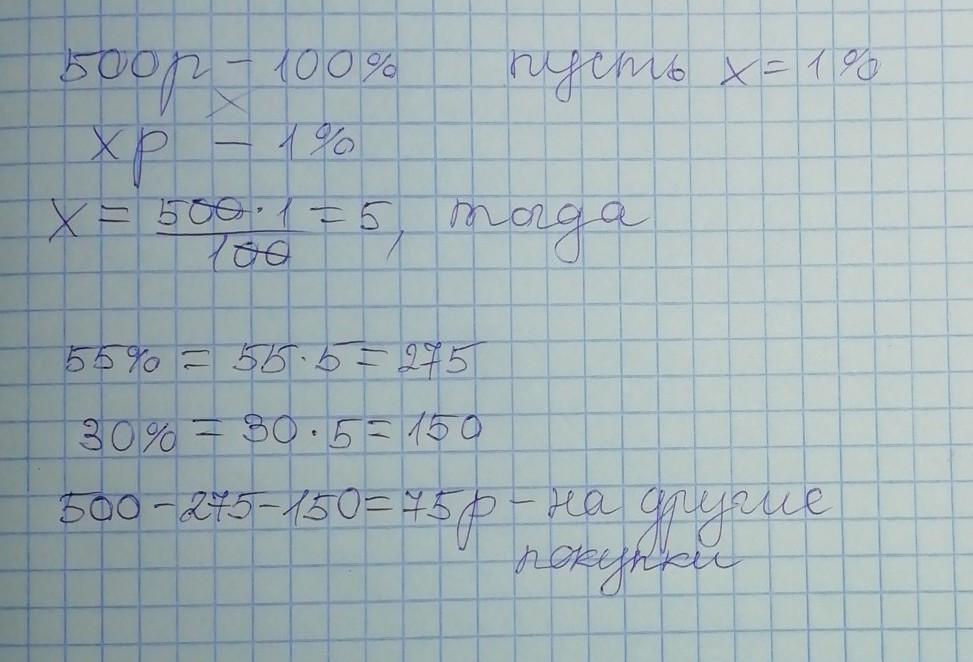 500р - 100% пусть x = 1%
xр - 1%
x = 500·1 / 100 = 5, тогда
55% = 55·5 = 275
30% = 30·5 = 150
500-275-150=75р - на другие
покупки